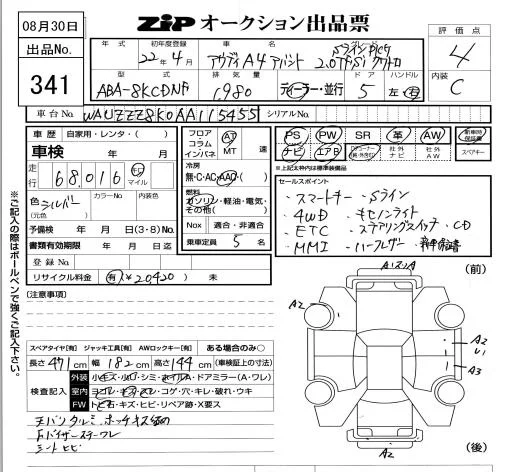 08月30日
ZIP オークション出品票
出品No.
341
年式 初年度登録 車名
22年4月 アウディA4アバント 2.0TFSI クワトロ
Sライン
型式 排気量 ドア ハンドル
ABA-8KCDNF 1,980 ディーラー・並行 5 左・右
評価点
4
内装
C
車台No. WAUZZZ8K0AA115455 シリアルNo.
車歴 自家用・レンタ・( )
車検 年 月
走行 68,016 Km マイル
色 シルバー カラーNo 内装色
(元色)
予備検 年 月 日(3・8)No.
書類有効期限 年 月 日迄
登録No.
リサイクル料金 有(¥20420) 未
フロア コラム インパネ AT MT 速
冷房
無・C・AC・AAC・( )
燃料
ガソリン・軽油・電気・その他( )
Nox 適合・非適合
乗車定員 5 名
PS PW SR 革 AW 新車時保証書
ナビ エアB 社外ナビ 社外AW スペアキー
※上記太枠内は標準装備品
セールスポイント
・スマートキー ・Sライン
・4WD ・キセノンライト
・ETC ・ステアリングスイッチ ・CD
・MMI ・ハーフレザー
※ご記入の際はボールペンで強くご記入下さい。
(注意事項)
(前)
A2
A2
U1
A3
A2
(後)
スペアタイヤ[有] ジャッキ工具[有] AWロックキー[有] ある場合のみ○
長さ 471cm 幅 182cm 高さ 144cm (車検証上の寸法)
検査記入
外装 小キズ・小凹・シミ・ホイルA・ドアミラー(A・ワレ)
室内 ヨゴレ・キズ・スレ・コゲ・穴・キレ・破れ・ウキ
FW トビ石・キズ・ヒビ・リペア跡・X要ス
シートヒビ